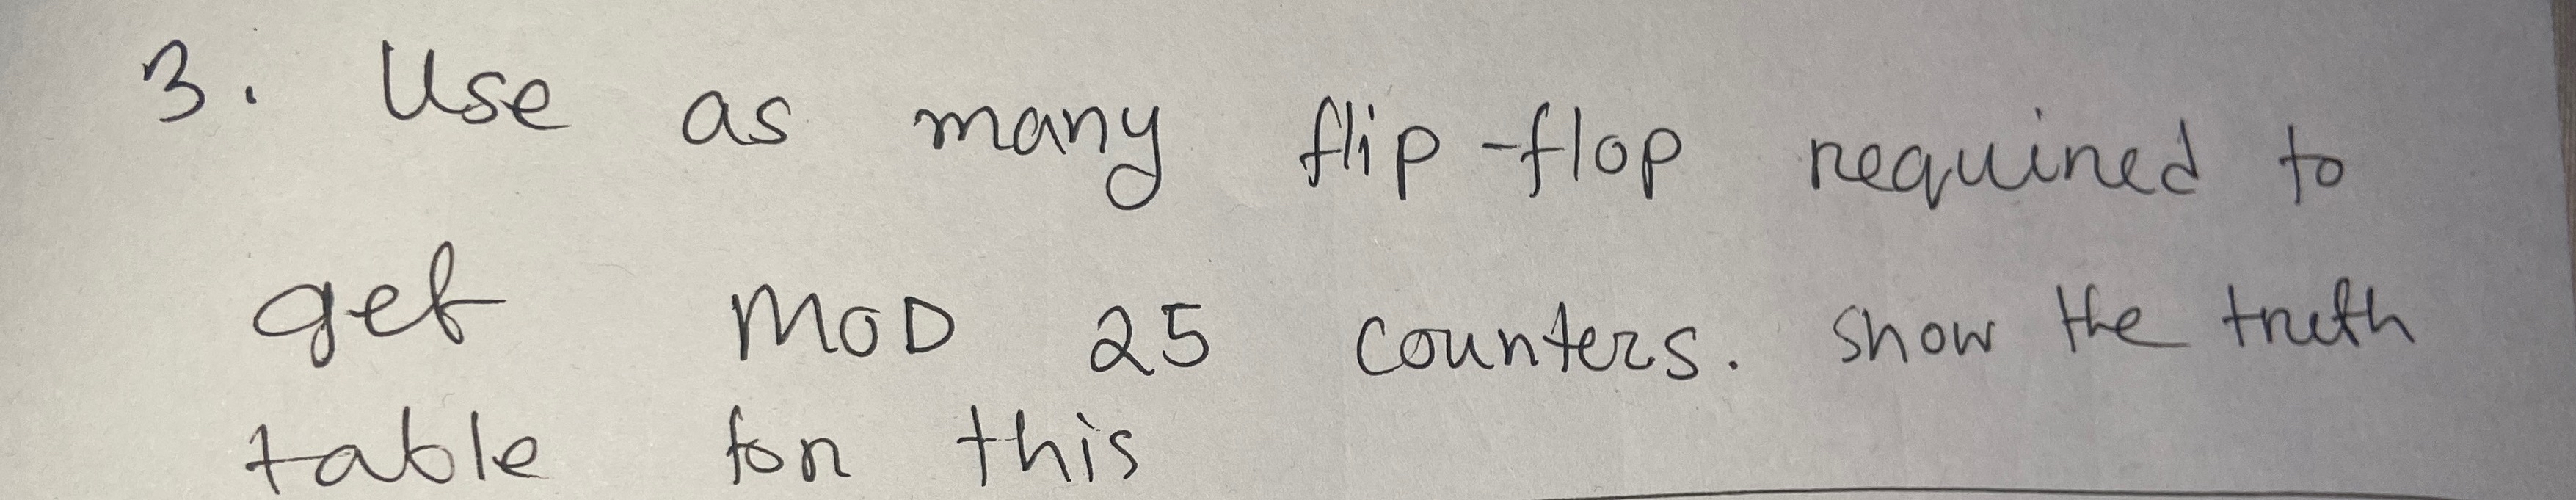 3. Use as many flip-flop required to
get MOD 25 counters. show the truth
table for this